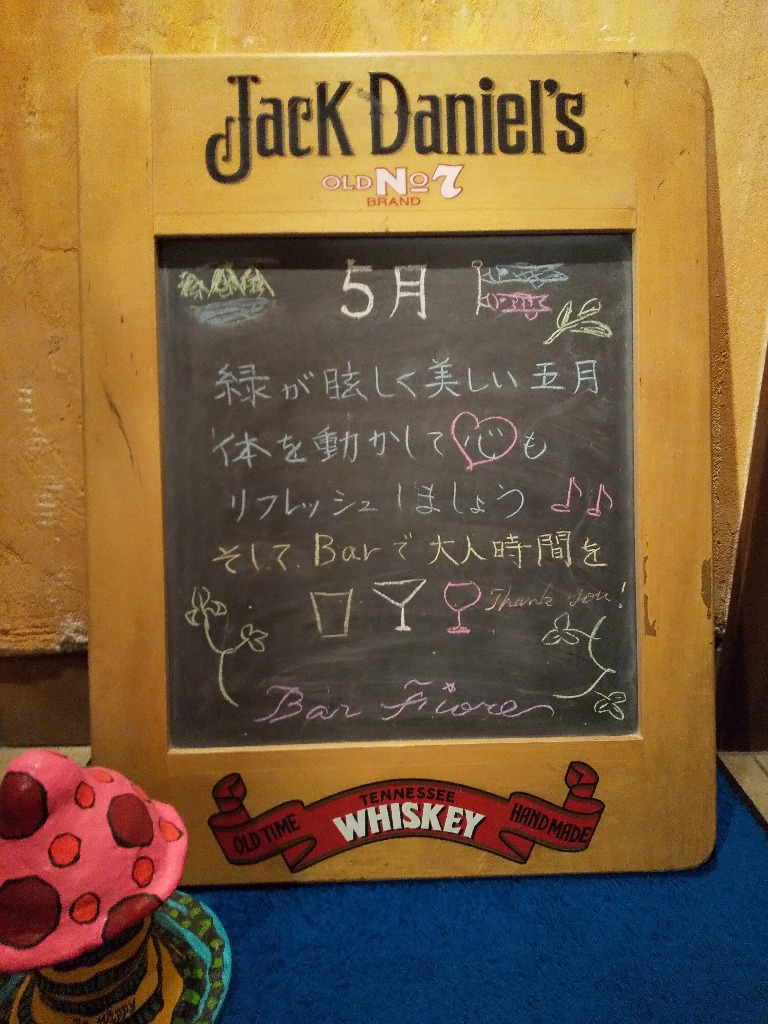 Jack Daniel's
OLD No 7
BRAND
5月
緑が眩しく美しい五月
体を動かして心も
リフレッシュしましょう♪♪
そして Barで大人時間を
Thank you!
Bar Fiore
TENNESSEE
OLD TIME WHISKEY HAND MADE